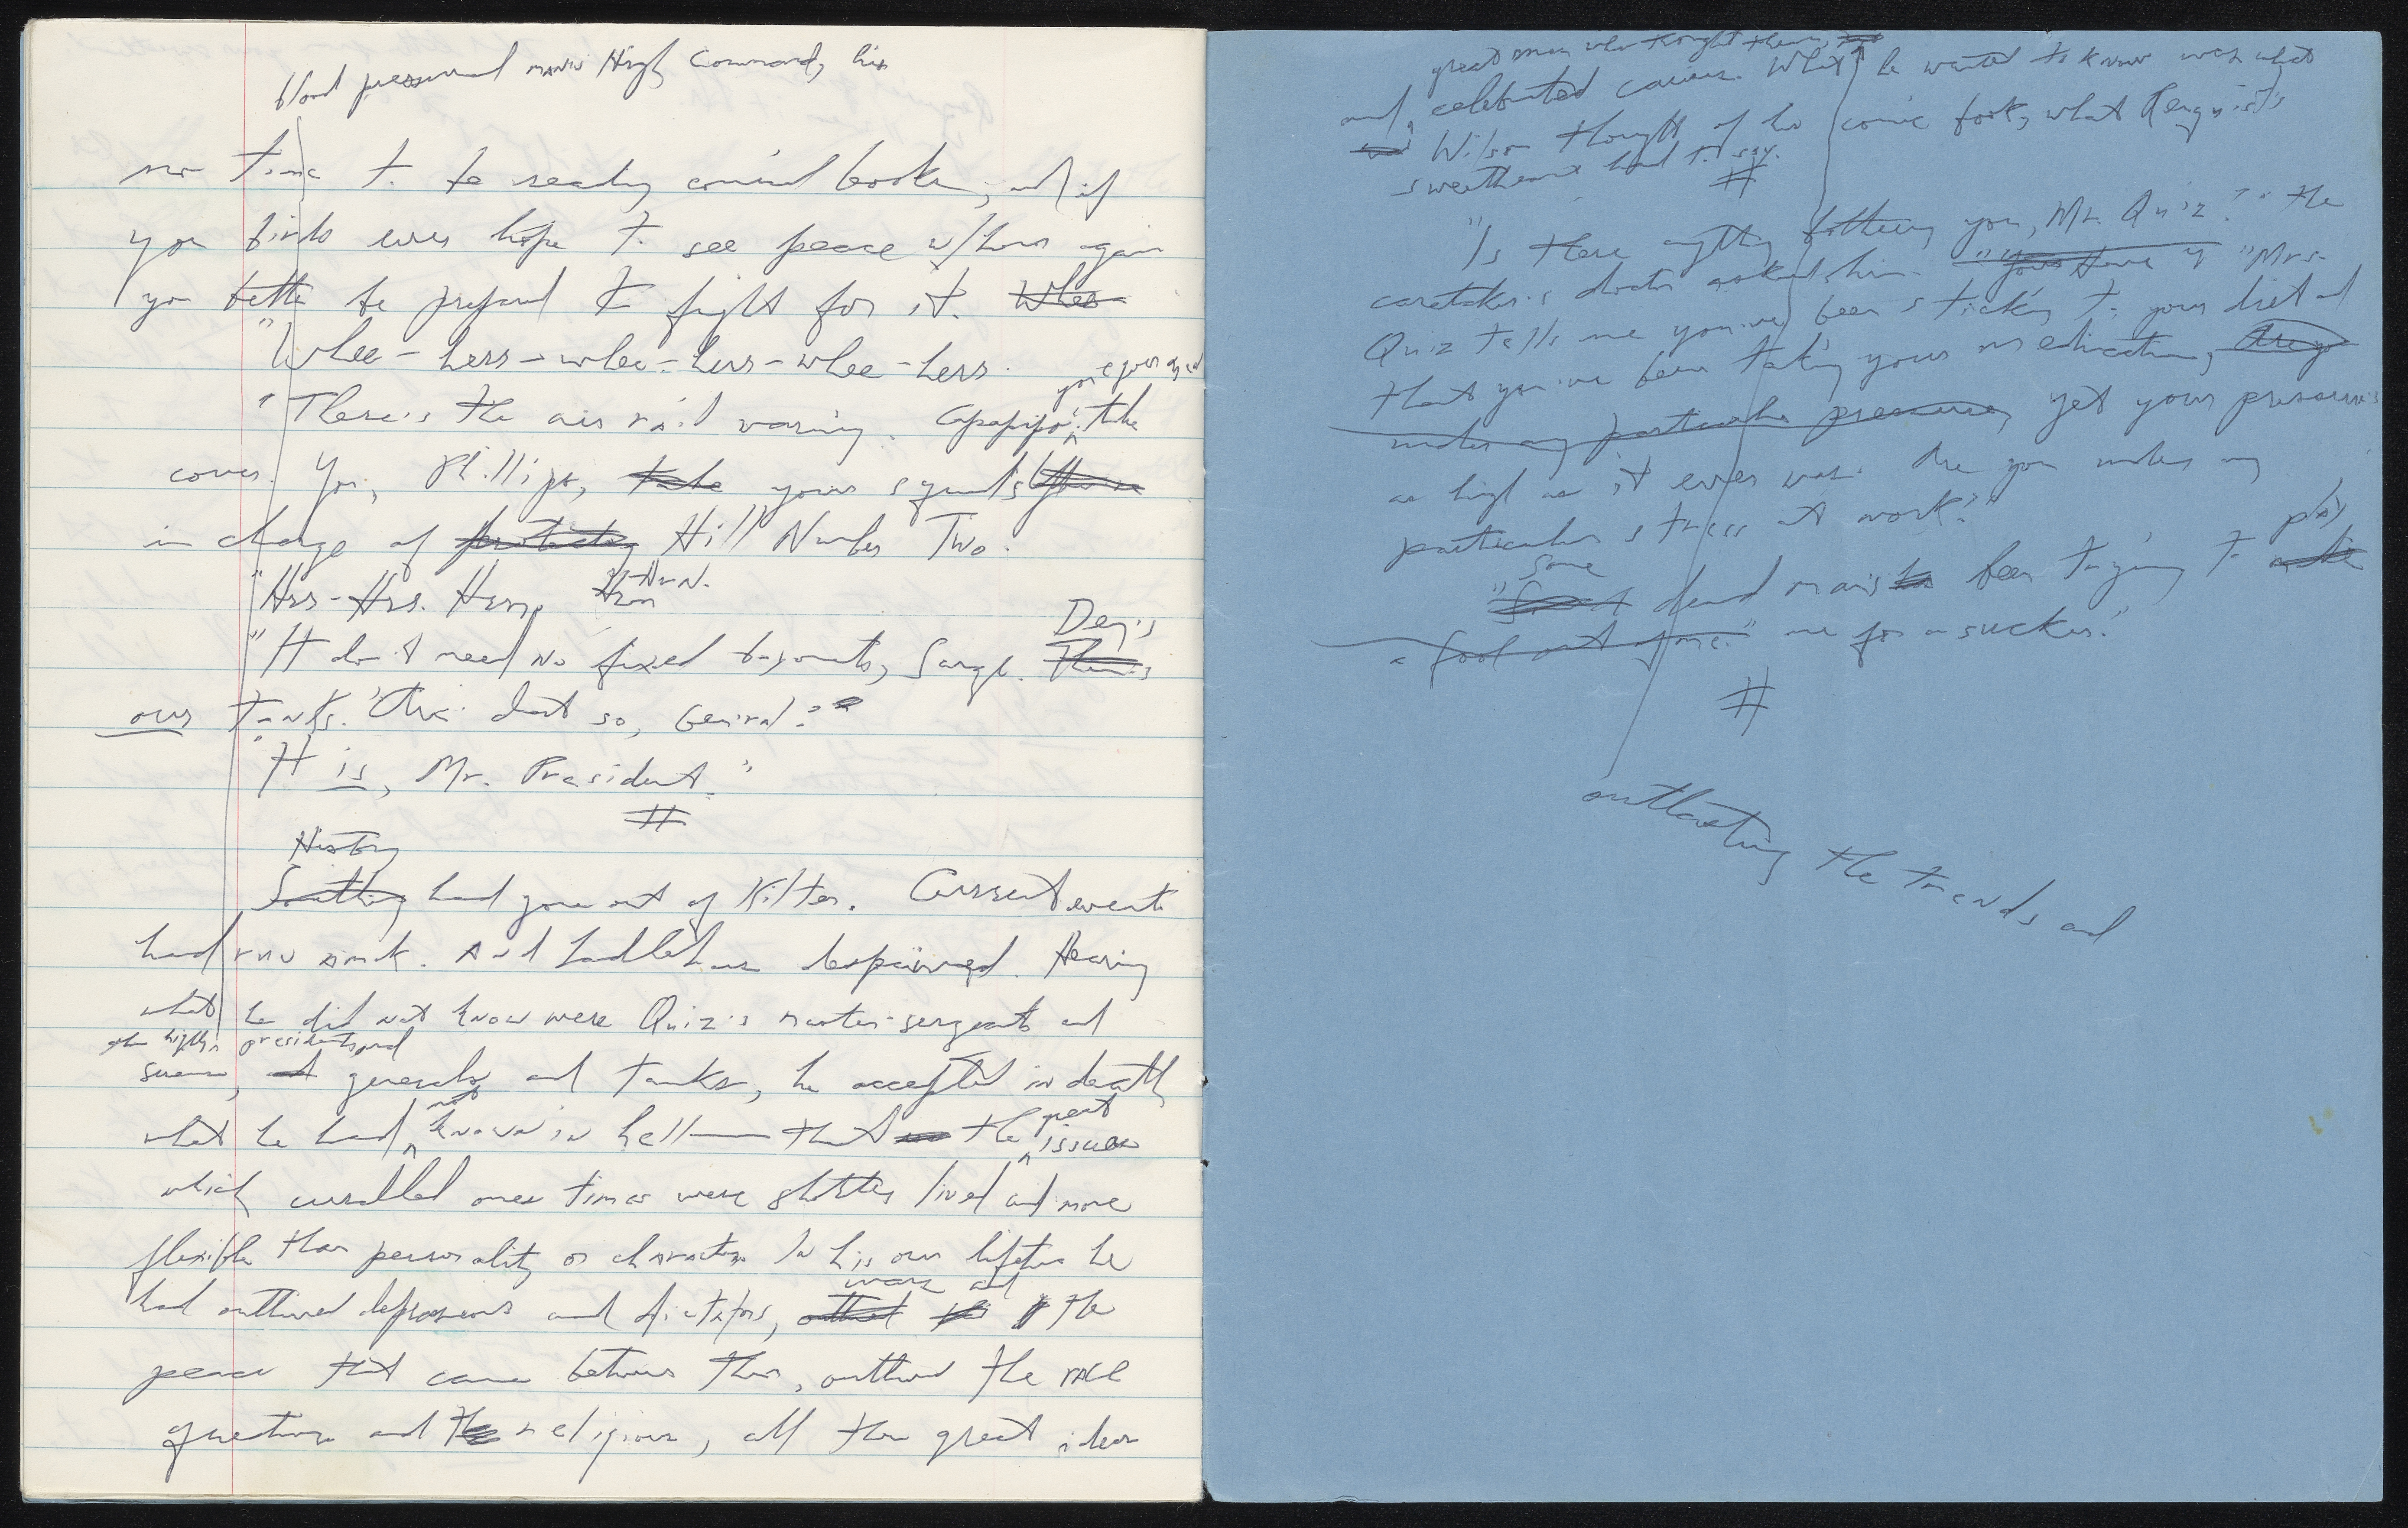 blood pressured man's High Command, his
no time to be reading comical books, and if
you birds ever hope to see peace w/hers again
you better be prepared to fight for it. Whee
"Whee-hers-whee-hers-whee-hers.
you
"There's the air raid warning. take
cover. You, Phillips, take your squad's
in charge of protecting Hill Number Two.
"Hrs-Hrs. Hrrr. Hrrn.
Dey's
"It don't need no fixed bayonets, Sarge. Them's
our tanks. 'Dat so, General?"
"It is, Mr. President."
#
History
Something had gone out of kilter. Current events
had run amok. And Ladlehaus despaired. Hearing
what he did not know were Quiz's master-sergeants and
the high presidents and
and generals and tanks, he accepted in death
not great
what he had known in hell — that the issues
which one's times were shorter lived and more
flexible than personality or character. In his own lifetime he
wars and
had outlived depressions and dictators, outlived the
peace that came between them, outlived the race
question and the religious, all the great ideas
great men who thought them,
and celebrated causes. What he wanted to know was what
was Wilson thought of his comic foot, what Renquist's
sweetheart had to say.
#
"Is there anything bothering you, Mr. Quiz?" the
caretaker's doctor asked him. "You have "Mrs.
Quiz tells me you've been sticking to your diet and
that you've been taking your medication, Are you
under any particular pressures, yet your pressure's
as high as it ever was. Are you under any
particular stress at work?"
Some play
"Some dead man's been trying to make
a fool out of me." me for a sucker."
#
outlasting the trends and